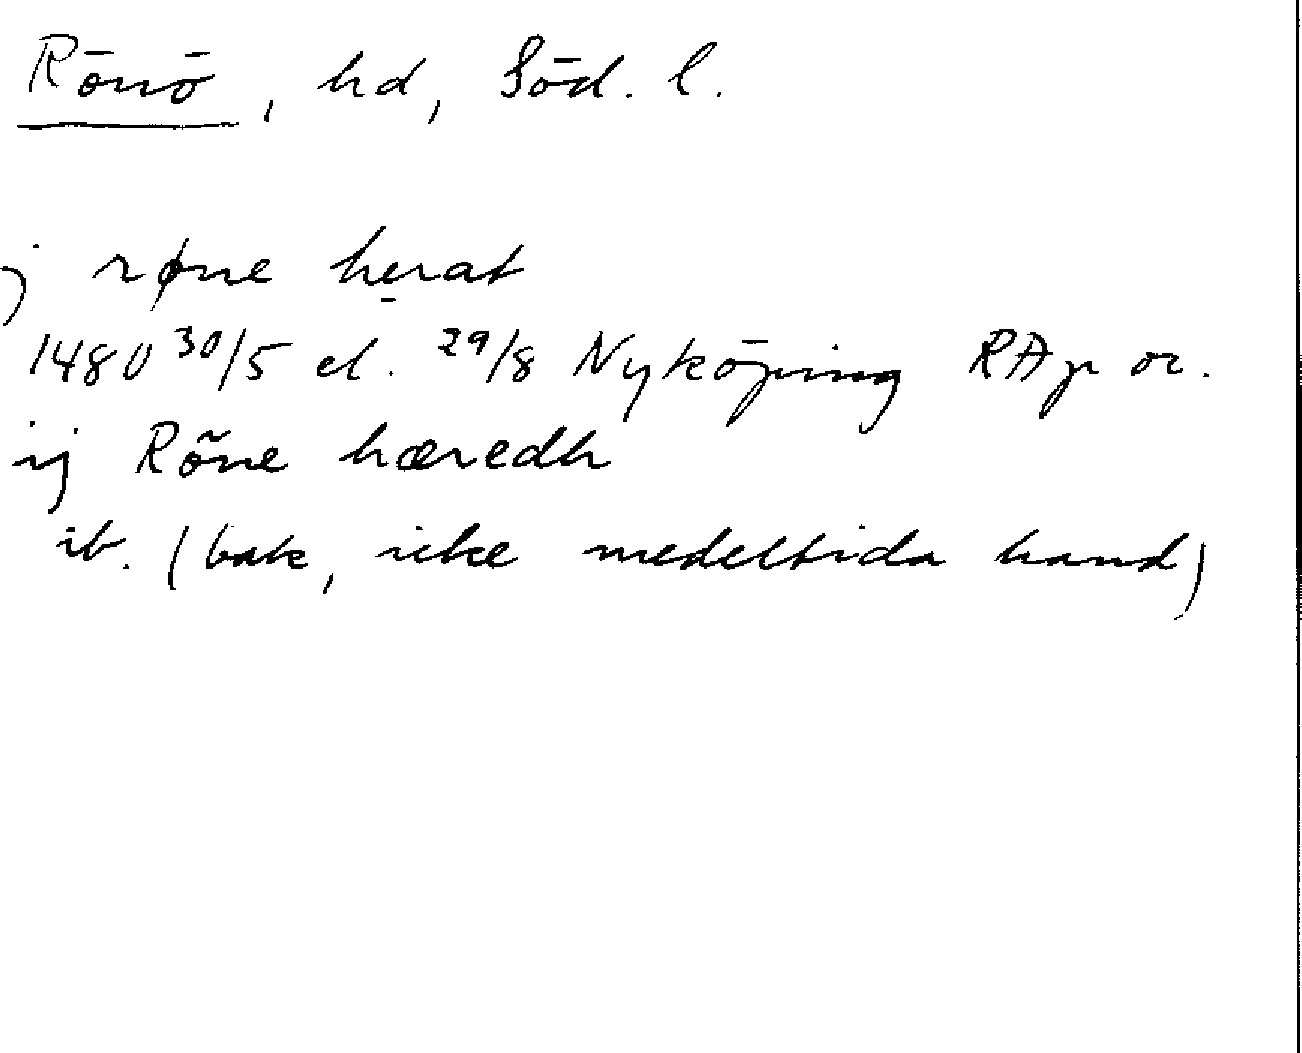 Rönö, hd, Söd. l.
j røne herat
1480 30/5 el. 29/8 Nyköping RAp or.
ij Röne hæredh
ib. (bak, icke medeltida hand)